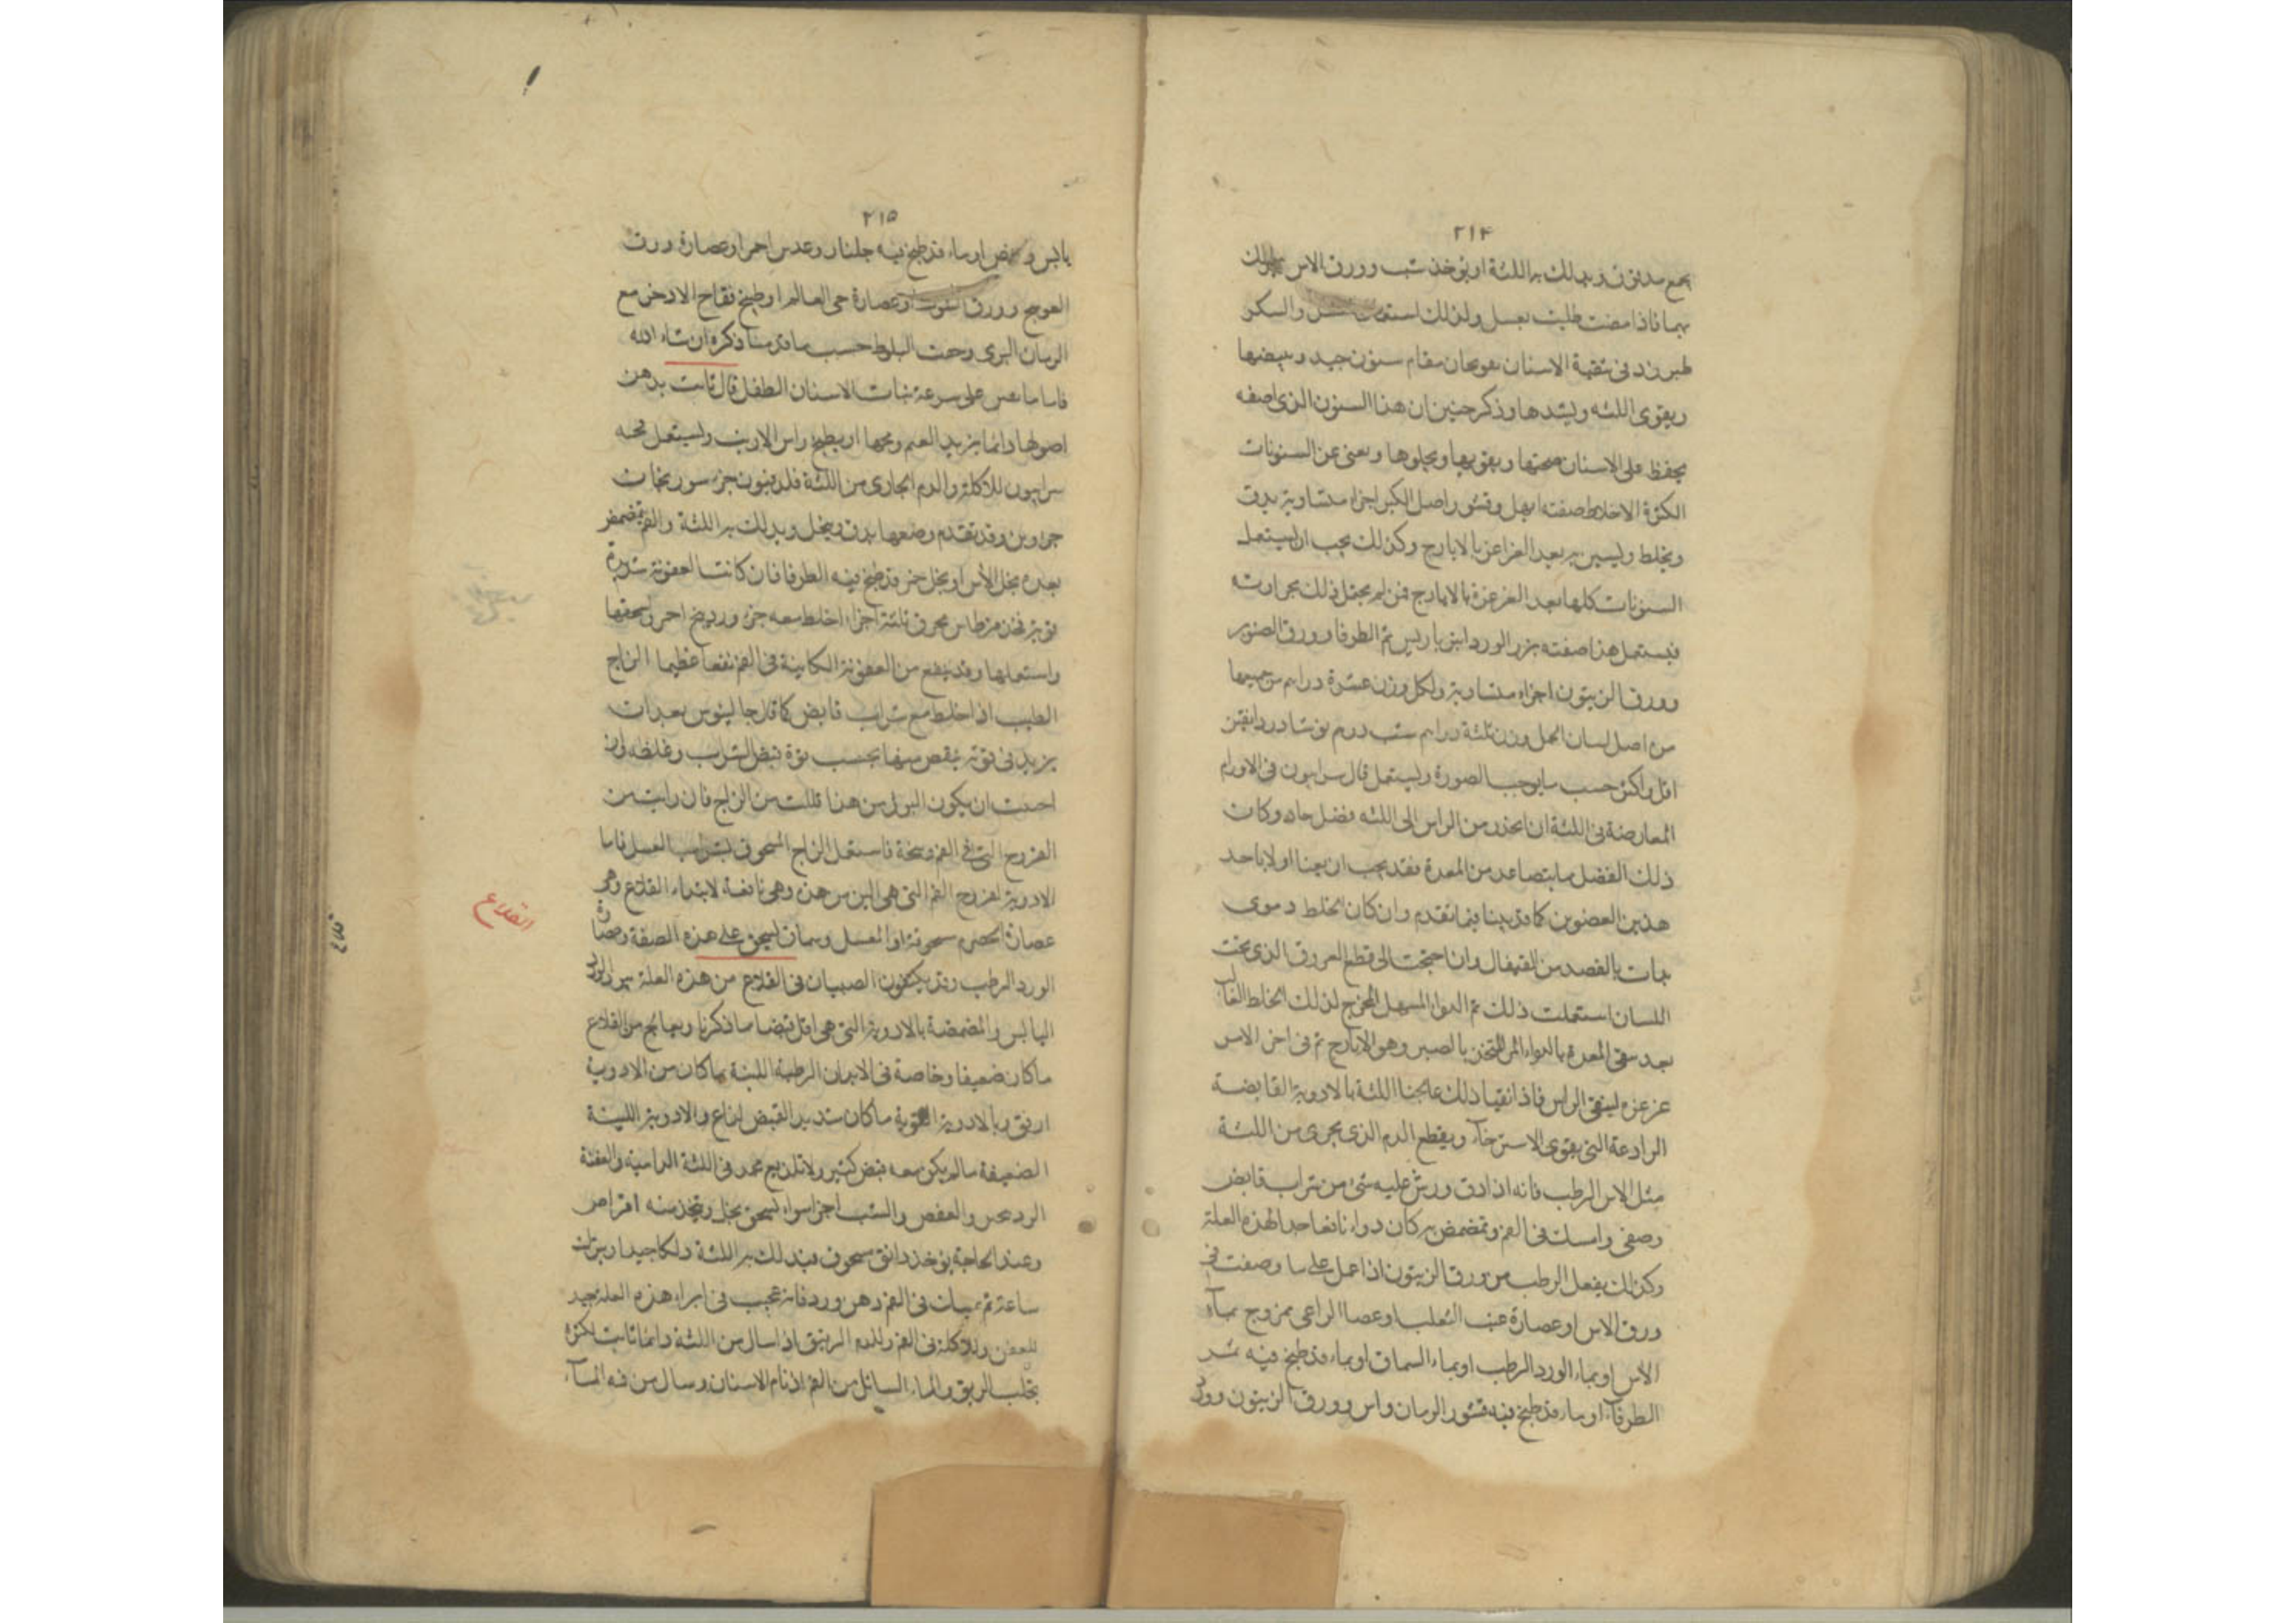 ٢١٤
يجمع مدقوق ويدلك به اللثة او يوخذ شب وورق الاس
بهما فاذا مضت طليت بعسل ولذلك والسكر
طبرزد فى تنقية الاسنان يقومان مقام سنون جيد ويبيضها
ويقوى اللثه ويشدها وذكر حنين ان هذا السنون الذى اصفه
يحفظ على الاسنان صحتها ويقويها ويجلوها ويغنى عن السنونات
الكثرة الاخلاط صفته ابهل وقشور اصل الكبر اجزاء متساوية يدق
ويخلط ويستن به بعد الغراغر بالايارج وكذلك يجب ان يستعمل
السنونات كلها بعد الغرغرة بالايارج فمن لم يحتمل ذلك لحرارته
فيستعمل هذا صفته بزر الورد ثمر الطرفا وورق الصنوبر
وورق الزيتون اجزاء متساوية ولكل وزن عشرة دراهم من جميعها
من اصل لسان الحمل وزن ثلثة دراهم شب درهم نوشادر دانقين
اقل واكثر حسب ما يوجب الصورة ويستعمل قال سرابيون فى الاورام
المعارضة فى اللثة ان انحدر من الراس الى اللثه فضل حاد وكان
ذلك الفضل مما يتصاعد من المعدة فقد يجب ان يعنا اولا باحد
هذين العضوين كما قد بينا فيما تقدم وان كان الخلط دموى
بدات بالفصد من القيفال وان احتجت الى قطع العروق الذى تحت
اللسان استعملت ذلك ثم الدوا المسهل المخرج لذلك الخلط الغالب
بعد سقى المعدة بالدواء المر المتخذ بالصبر وهو الايارج ثم فى اخر الامر
غرغره لينقى الراس فاذا نقيا ذلك عالجنا اللثة بالادوية القابضة
الرادعة التى يقوى الاسترخاء ويقطع الدم الذى يجرى من اللثة
مثل الاس الرطب فانه اذا دق ورش عليه شئ من شراب قابض
وصفى وامسك فى الفم وتمضمض به كان دواء نافعا جدا لهذه العلة
وكذلك يفعل الرطب من ورق الزيتون اذا عمل على ما وصفت فى
ورق الاس او عصارة عنب الثعلب او عصا الراعى ممزوج بماء
الاس او بماء الورد الرطب او بماء السماق او بماء قد طبخ فيه ثمر
الطرفاء او بماء قد طبخ فيه قشور الرمان واس وورق الزيتون وورد
٢١٥
يابس وعفص او ماء قد طبخ فيه جلنار وعدس احمر او عصارة ورق
العوسج وورق التوت او عصارة حى العالم او طبخ فقاح الاذخر مع
الرمان البرى وجفت البلوط حسب ما قدمنا ذكره ان شاء الله
فاما ما يعين على سرعة نبات الاسنان الطفل قال ثابت يدهن
اصولها دائما بزبد الغنم ومخها او يطبخ راس الارنب ويستعمل مخه
سرابيون للاكلة والدم الجارى من اللثة فلدفيون جزء سوريخان
جزاوين وقد تقدم وصفها يدق وينخل ويدلك به اللثة والفم تمضمض
بعده بخل الاس او بخل خمر قد طبخ فيه الطرفا فان كانت العفونة شديدة
قوية فخذ قرطاس محرق ثلثة اجزاء اخلط معه جزء وزرنيخ احمر واسحقها
واستعملها وقد ينفع من العفونة الكاينة فى الفم نفعا عظيما الزاج
الطيب اذا خلط مع شراب قابض كما قال جالينوس بعد ان
يزيد فى قوته ينقص منها بحسب قوة قبض الشراب وغلظه وان
احببت ان يكون البول من هذا قللت من الزاج فان رايت من
القروح التى فى الفم وسخة فاستعمل الزاج المسحوق بشراب العسل فاما
الادوية لقروح الفم التى هى الين من هذه وهى نافعة لابتداء القلاع وهى
القلاع
عصارة الحصرم مسحوقة او العسل وسماق يسحق على هذه الصفة وعصارة
الورد الرطب وقد يكتفون الصبيان فى القلاع من هذه العلة بزر الورد
اليابس والمضمضة بالادوية التى هى اقل قبضا مما ذكرنا ويعالج من القلاع
ما كان ضعيفا وخاصة فى الابدان الرطبة اللينة بما كان من الادوية
ارفق وبالادوية القوية ما كان شديد القبض لذاع والادوية اللينة
الضعيفة ما لم يكن معه قبض كثير ولا تلذيع محمد فى اللثة الدامية والعفنة
والعفص والشب اجزا سواء يسحق بخل ويتخذ منه اقراص
وعند الحاجة يوخذ دانق مسحوق فيدلك به اللثة دلكا جيدا ويترك
ساعة ثم يمسك فى الفم دهن ورد فانه عجيب فى ابراء هذه العلة جيد
للعفن وللاكلة فى الفم وللدم الرقيق اذا سال من اللثة دائما ثابت لكثرة
تحلب الريق والماء السائل من الفم اذ نام الانسان وسال من فه الماء